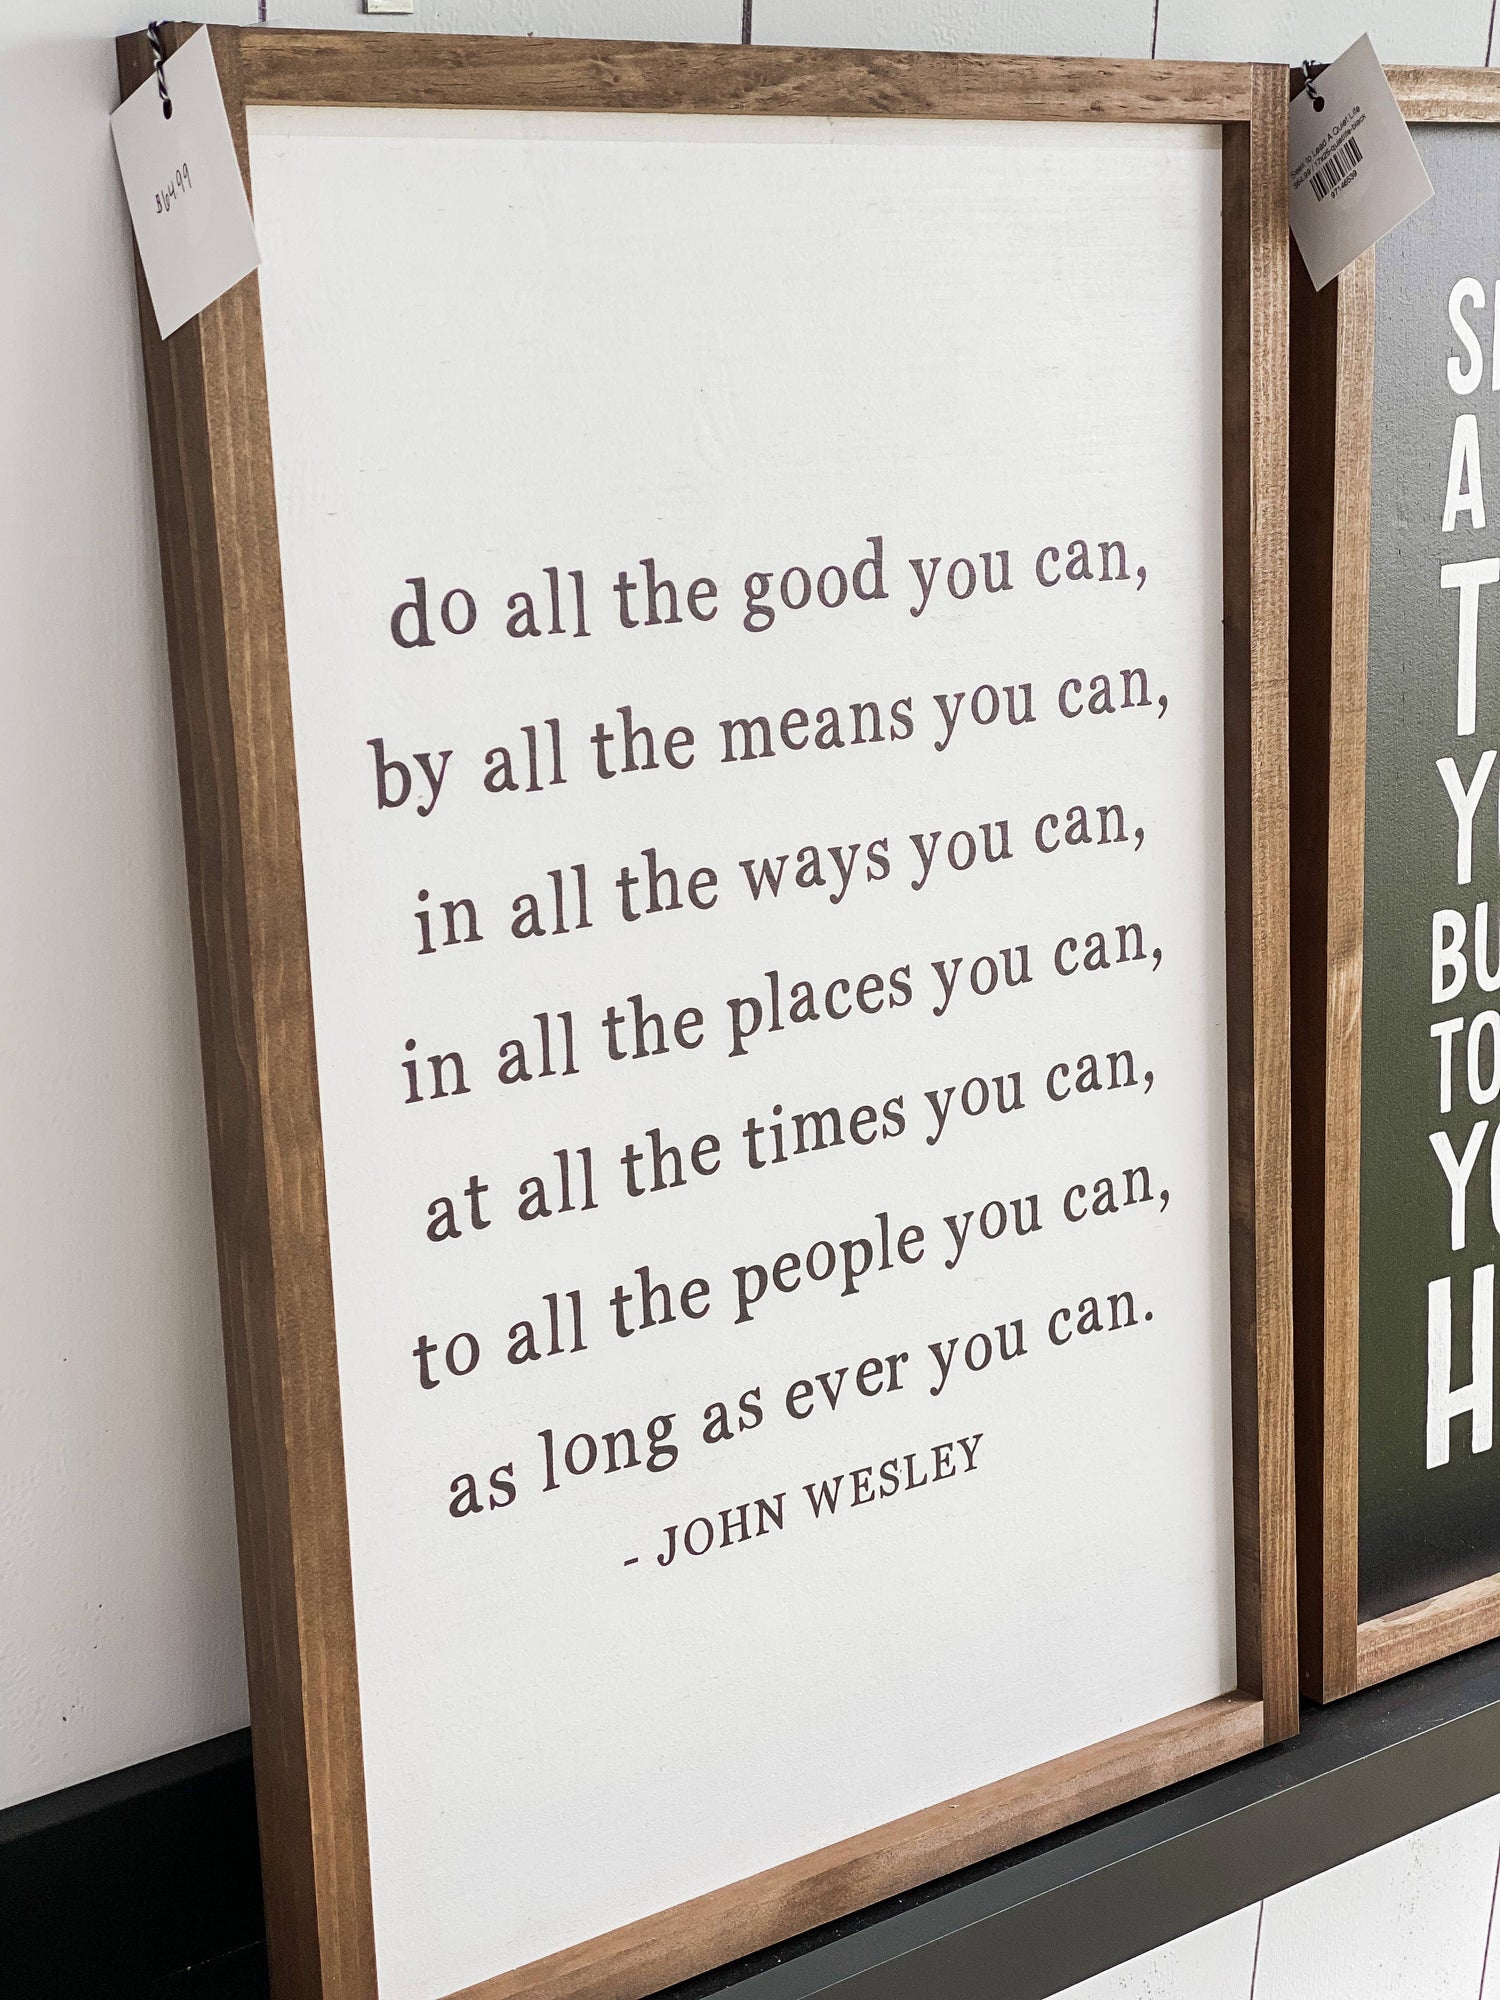 $64.99
do all the good you can,
by all the means you can,
in all the ways you can,
in all the places you can,
at all the times you can,
to all the people you can,
as long as ever you can.
- JOHN WESLEY
Seek to Lead A Quiet Life
$64.99 / 17x25-quietlife-black
97146539
A
T
BU
TO
H